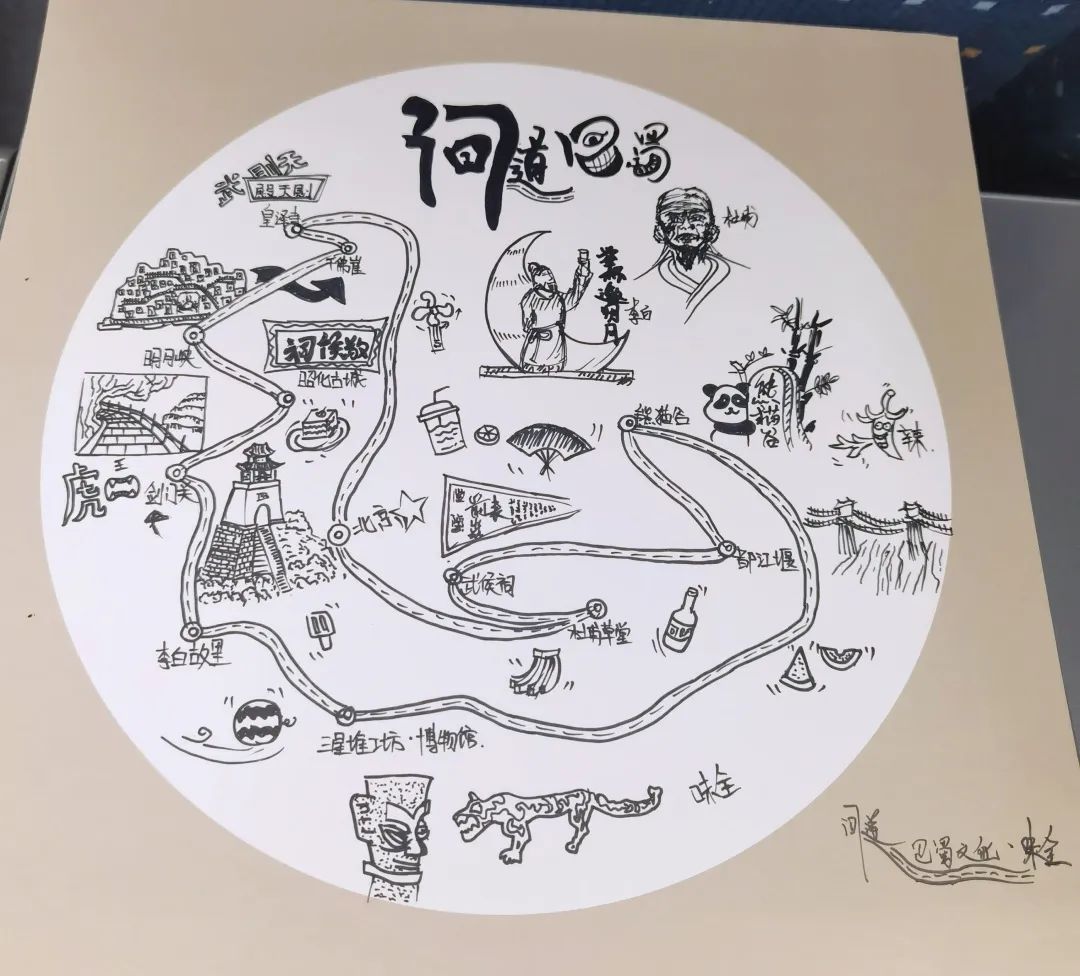 问道巴蜀
武则天
则天殿
皇泽寺
千佛崖
杜甫
李白
举杯邀明月
明月峡
昭化古城
熊猫谷
熊猫谷
辣
虎
王
剑门关
北京
武侯祠
都江堰
李白故里
杜甫草堂
三星堆工坊·博物馆
味全
问道
巴蜀文化·味全